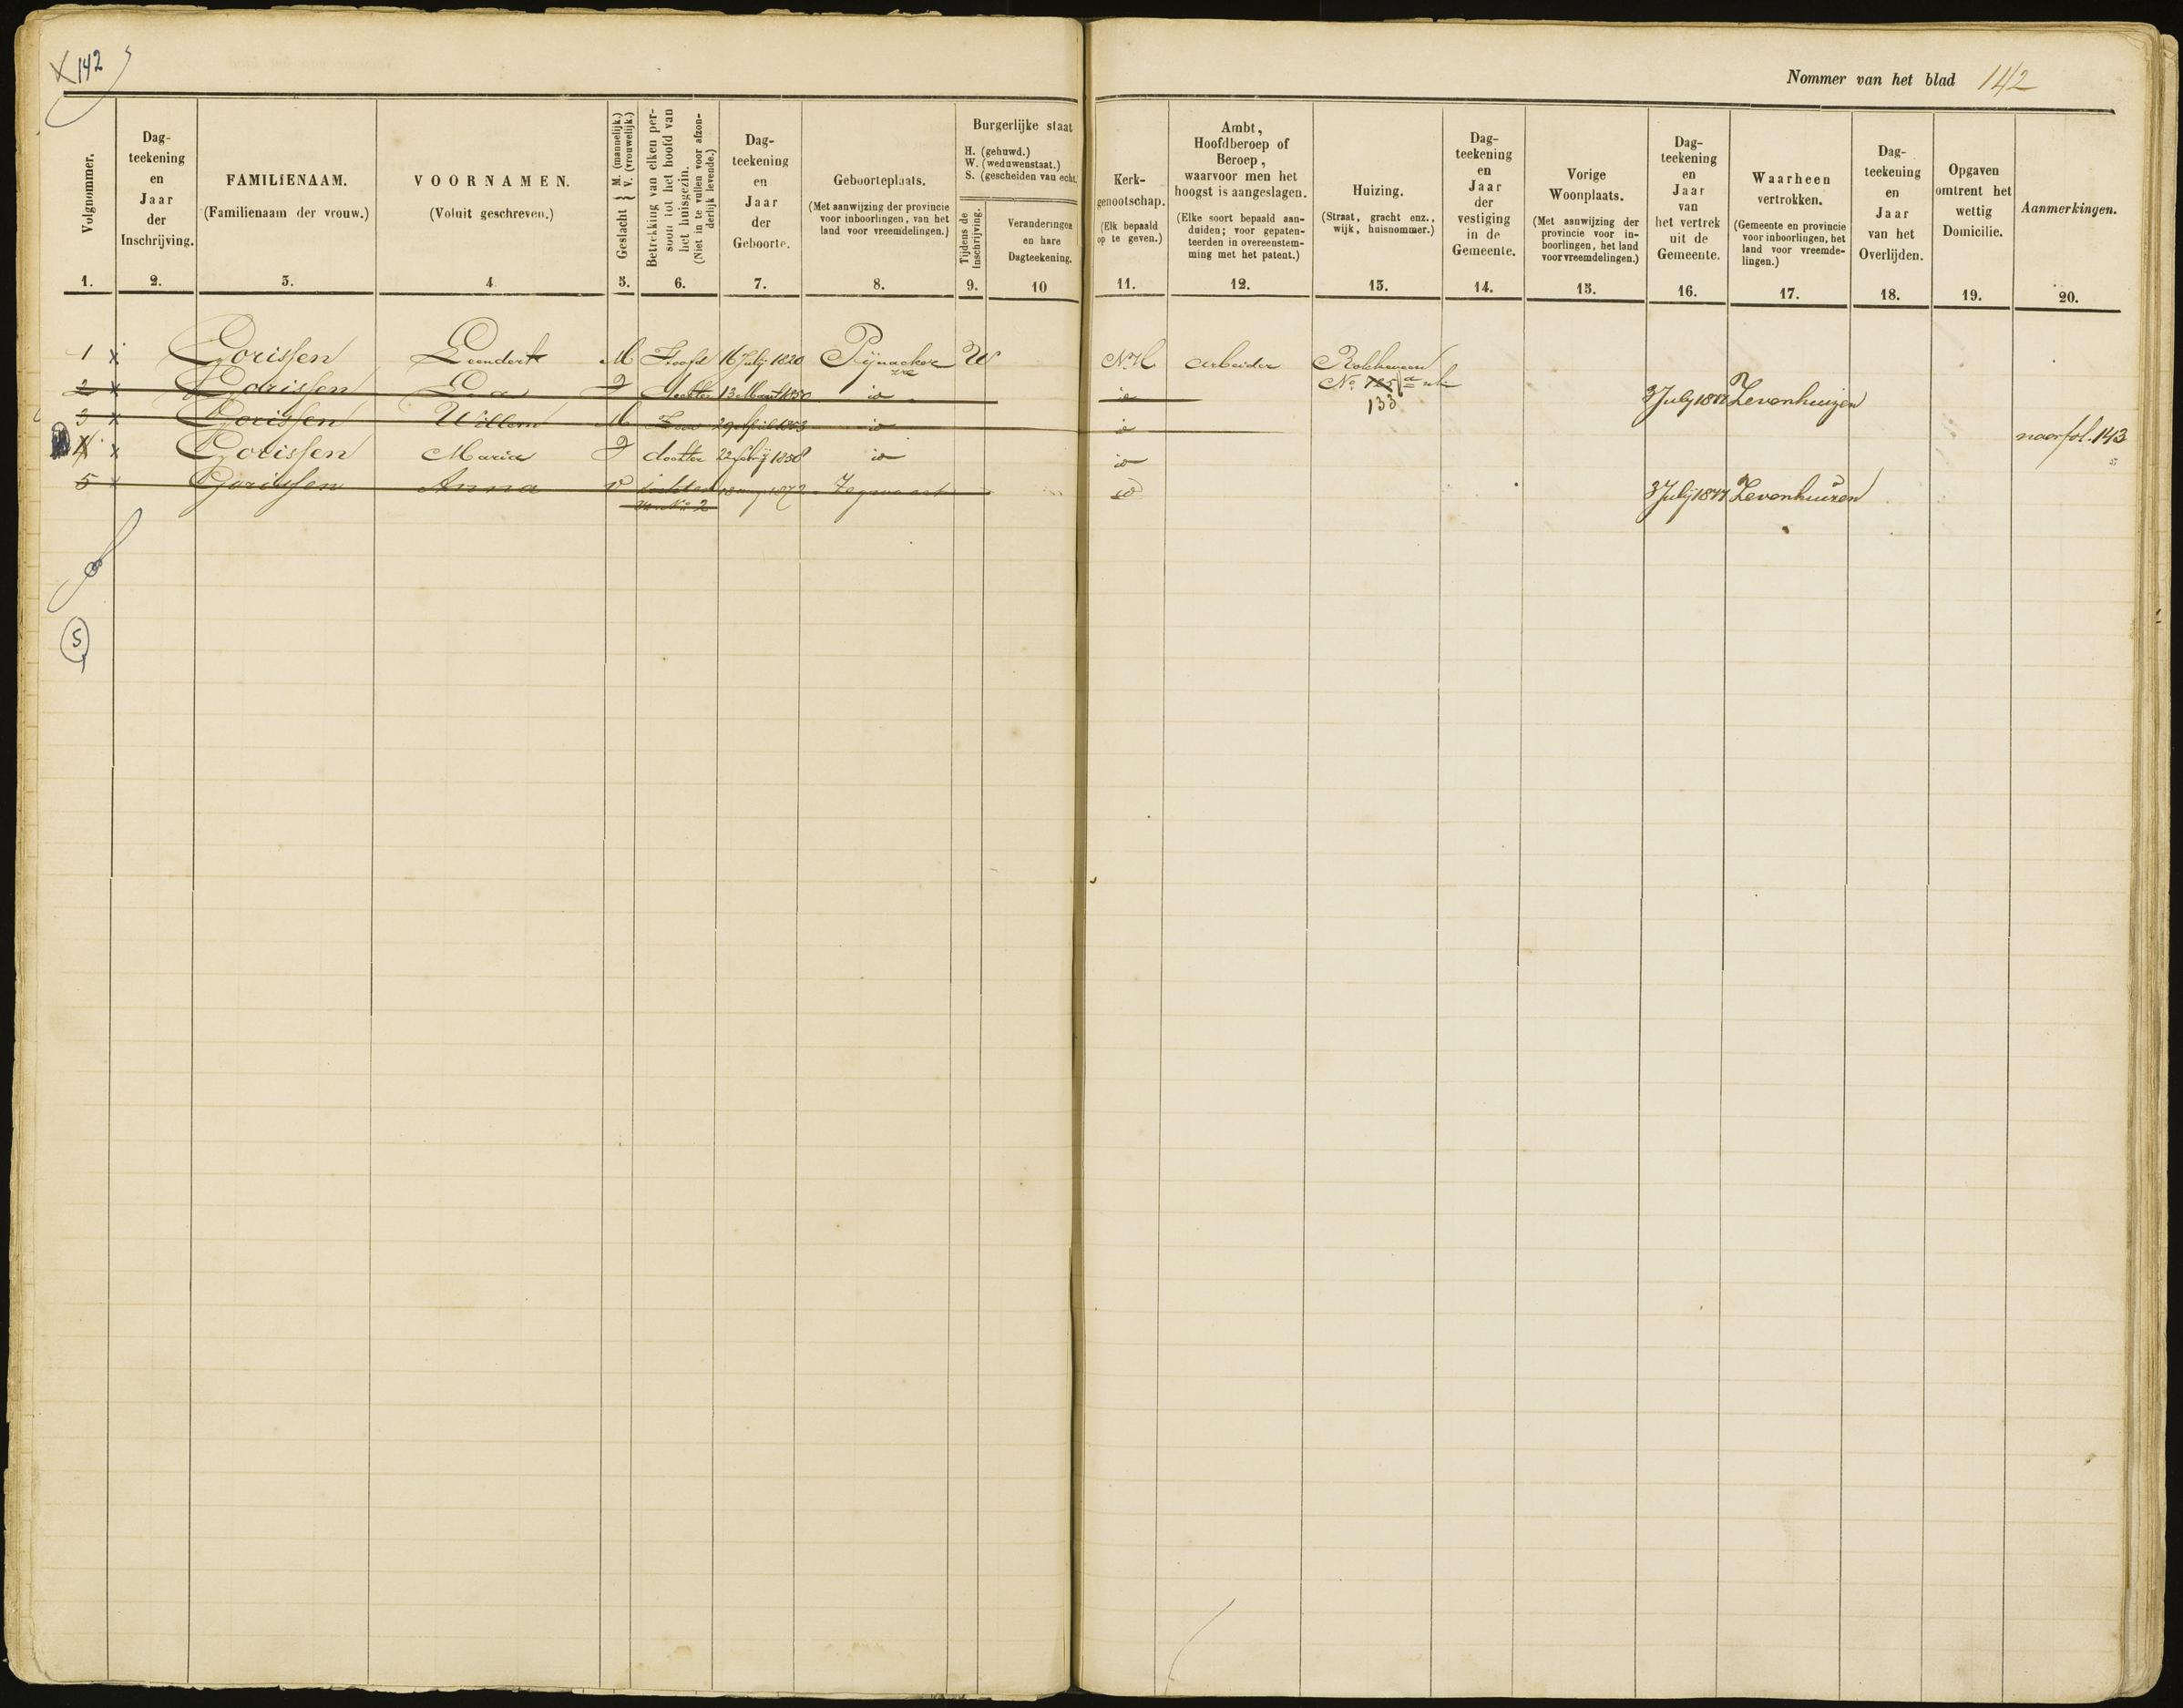 142
Nommer van het blad 142
Volgnommer.
Dag-
teekening
en
Jaar
der
Inschrijving.
FAMILIENAAM.
(Familienaam der vrouw.)
VOORNAMEN.
(Voluit geschreven.)
Geslacht { M. (mannelijk.) V. (vrouwelijk.)
Betrekking van elken per-
soon tot het hoofd van
het huisgezin.
(Niet in te vullen voor afzon-
derlijk levende.)
Dag-
teekening
en
Jaar
der
Geboorte.
Geboorteplaats.
(Met aanwijzing der provincie
voor inboorlingen, van het
land voor vreemdelingen.)
Burgerlijke staat
H. (gehuwd.)
W. (weduwenstaat.)
S. (gescheiden van echt.)
Tijdens de
Inschrijving.
Veranderingen
en hare
Dagteekening.
Kerk-
genootschap.
(Elk bepaald
op te geven.)
Ambt,
Hoofdberoep of
Beroep,
waarvoor men het
hoogst is aangeslagen.
(Elke soort bepaald aan-
duiden; voor gepaten-
teerden in overeenstem-
ming met het patent.)
Huizing.
(Straat, gracht enz.,
wijk, huisnommer.)
Dag-
teekening
en
Jaar
der
vestiging
in de
Gemeente.
Vorige
Woonplaats.
(Met aanwijzing der
provincie voor in-
boorlingen, het land
voor vreemdelingen.)
Dag-
teekening
en
Jaar
van
het vertrek
uit de
Gemeente.
Waarheen
vertrokken.
(Gemeente en provincie
voor inboorlingen, het
land voor vreemde-
lingen.)
Dag-
teekening
en
Jaar
van het
Overlijden.
Opgaven
omtrent het
wettig
Domicilie.
Aanmerkingen.
1. 2. 3. 4 5. 6. 7. 8. 9. 10 11. 12. 13. 14. 15. 16. 17. 18. 19. 20.
1 x Gorissen Leendert M Hoofd 16 July 1820 Pijnacker W N.H. Arbeider
No. 725 a
133
2 x Gorissen dochter 13 Maart 1850 id id 3 July 1877 Zevenhuizen
3 x Gorissen Willem M Zoon 29 April 1853 id id naar fol. 143
4 x Gorissen Maria dochter 22 1858 id id
5 x Gorissen Anna V dochter 18 1872 Zegwaart id 3 July 1877 Zevenhuizen
van No 2
5